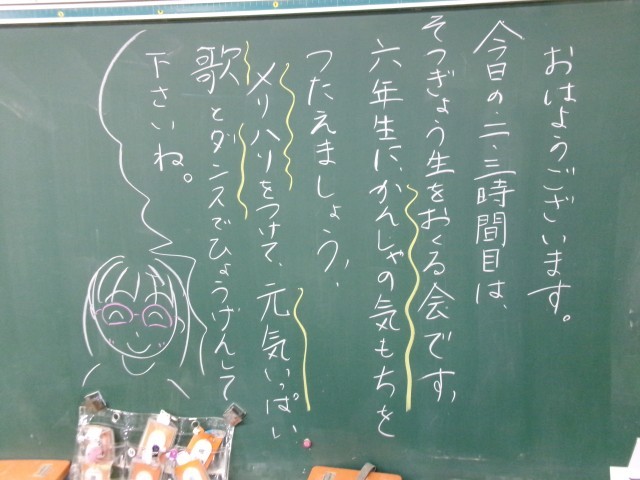 おはようございます。
今日の二、三時間目は、
そつぎょう生をおくる会です。
六年生に、かんしゃの気もちを
つたえましょう。
メリハリをつけて、元気いっぱい
歌とダンスでひょうげんして
下さいね。